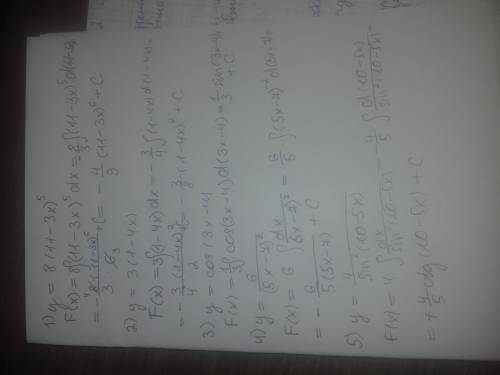 1) y = 8(11-3x)^5
F(x) = 8∫(11-3x)^5 dx = -8/3 ∫(11-3x)^5 d(11-3x)
= -8(11-3x)^6/(3·6) + C = -4/9 (11-3x)^6 + C
2) y = 3(1-4x)
F(x) = 3∫(1-4x)dx = -3/4 ∫(1-4x)d(1-4x) =
= -3/4 (1-4x)^2/2 + C = -3/8 (1-4x)^2 + C
3) y = cos(3x-4)
F(x) = 1/3 ∫cos(3x-4)d(3x-4) = 1/3 sin(3x-4) + C
4) y = 6/(5x-7)^2
F(x) = 6∫dx/(5x-7)^2 = 6/5 ∫(5x-7)^-2 d(5x-7) =
= -6/(5(5x-7)) + C
5) y = 4/sin²(10-5x)
F(x) = 4∫dx/sin²(10-5x) = -4/5 ∫d(10-5x)/sin²(10-5x) =
= +4/5 ctg(10-5x) + C